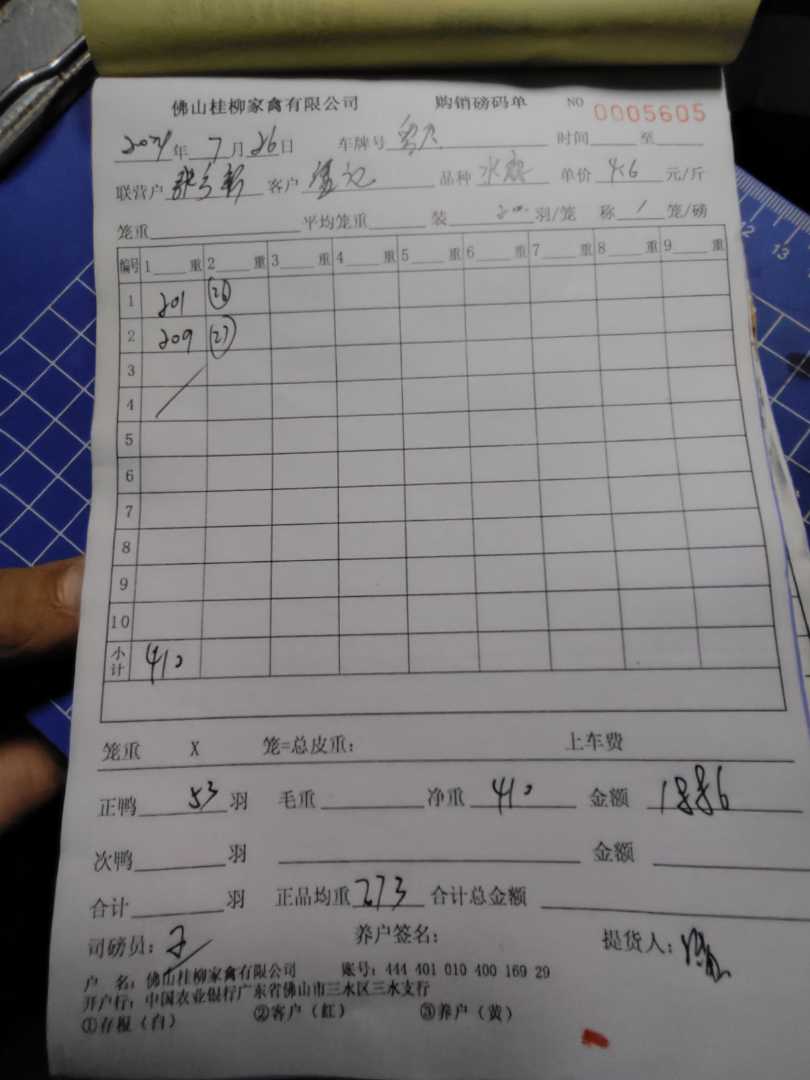 佛山桂柳家禽有限公司 购销磅码单 NO 0005605
2024年 7月 26日 车牌号 时间 至
联营户 客户 品种 水 单价 4.6 元/斤
笼重 平均笼重 装 羽/笼 称 1 笼/磅
编号 1 重 2 重 3 重 4 重 5 重 6 重 7 重 8 重 9 重
1 201 26
2 209 27
3
4
5
6
7
8
9
10
小计 410
笼重 X 笼=总皮重: 上车费
正鸭 53 羽 毛重 净重 410 金额 1886
次鸭 羽 金额
合计 羽 正品均重 7.73 合计总金额
司磅员: 养户签名: 提货人:
户 名: 佛山桂柳家禽有限公司 账号: 444 401 010 400 169 29
开户行: 中国农业银行广东省佛山市三水区三水支行
①存根(白) ②客户(红) ③养户(黄)